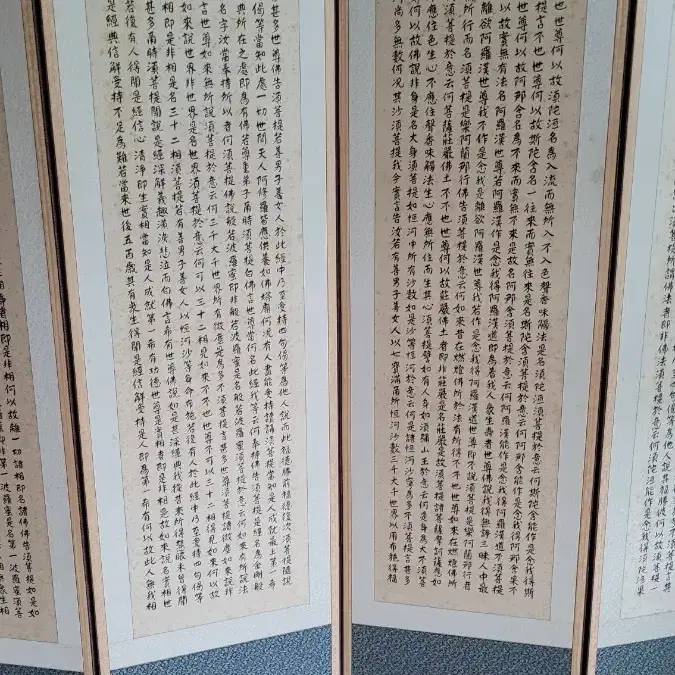 等為他人說其福勝彼何以故須菩提一
所謂佛法者即非佛法須菩提於意云何須陀洹能作是念我得須陀洹果
也世尊何以故須陀洹名為入流而無所入不入色聲香味觸法是名須陀洹須菩提於意云何斯陀含能作是念我得斯
提言不也世尊何以故斯陀含名一往來而實無往來是名斯陀含須菩提於意云何阿那含能作是念我得阿那含果不
也世尊何以故阿那含名為不來而實無不來是故名阿那含須菩提於意云何阿羅漢能作是念我得阿羅漢道不須菩
以故實無有法名阿羅漢世尊若阿羅漢作是念我得阿羅漢道即為著我人眾生壽者世尊佛說我得無諍三昧人中最
離欲阿羅漢世尊我不作是念我是離欲阿羅漢世尊我若作是念我得阿羅漢道世尊即不說須菩提是樂阿蘭那行者
所行而名須菩提是樂阿蘭那行佛告須菩提於意云何如來昔在燃燈佛所於法有所得不不也世尊如來在燃燈佛所
提於意云何菩薩莊嚴佛土不不也世尊何以故莊嚴佛土者即非莊嚴是名莊嚴是故須菩提諸菩薩摩訶薩應如
應住色生心不應住聲香味觸法生心應無所住而生其心須菩提譬如有人身如須彌山王於意云何是身為大不須菩
何以故佛說非身是名大身須菩提如恒河中所有沙數如是沙等恒河於意云何是諸恒河沙寧為多不須菩提言甚多
尚多無數何況其沙須菩提我今實言告汝若有善男子善女人以七寶滿爾所恒河沙數三千大千世界以用布施得福
甚多世尊佛告須菩提若善男子善女人於此經中乃至受持四句偈等為他人說而此福德勝前福德復次須菩提隨說
偈等當知此處一切世間天人阿修羅皆應供養如佛塔廟何況有人盡能受持讀誦須菩提當知是人成就最上第一希
典所在之處即為有佛若尊重弟子爾時須菩提白佛言世尊當何名此經我等云何奉持佛告須菩提是經名為金剛般
名字汝當奉持所以者何須菩提佛說般若波羅蜜即非般若波羅蜜是名般若波羅蜜須菩提於意云何如來有所說法
言世尊如來無所說須菩提於意云何三千大千世界所有微塵是為多不須菩提言甚多世尊須菩提諸微塵如來說非
如來說世界非世界是名世界須菩提於意云何可以三十二相見如來不不也世尊不可以三十二相得見如來何以故
相即是非相是名三十二相須菩提若有善男子善女人以恒河沙等身命布施若復有人於此經中乃至受持四句偈等
甚多爾時須菩提聞說是經深解義趣涕淚悲泣而白佛言希有世尊佛說如是甚深經典我從昔來所得慧眼未曾得聞
若復有人得聞是經信心清淨即生實相當知是人成就第一希有功德世尊是實相者即是非相是故如來說名實相世
是經典信解受持不足為難若當來世後五百歲其有眾生得聞是經信解受持是人即為第一希有何以故此人無我相
壽者相即是非相何以故離一切諸相即名諸佛佛告須菩提如是如
即非第一波羅蜜是名第一波羅蜜須菩
相無眾生相